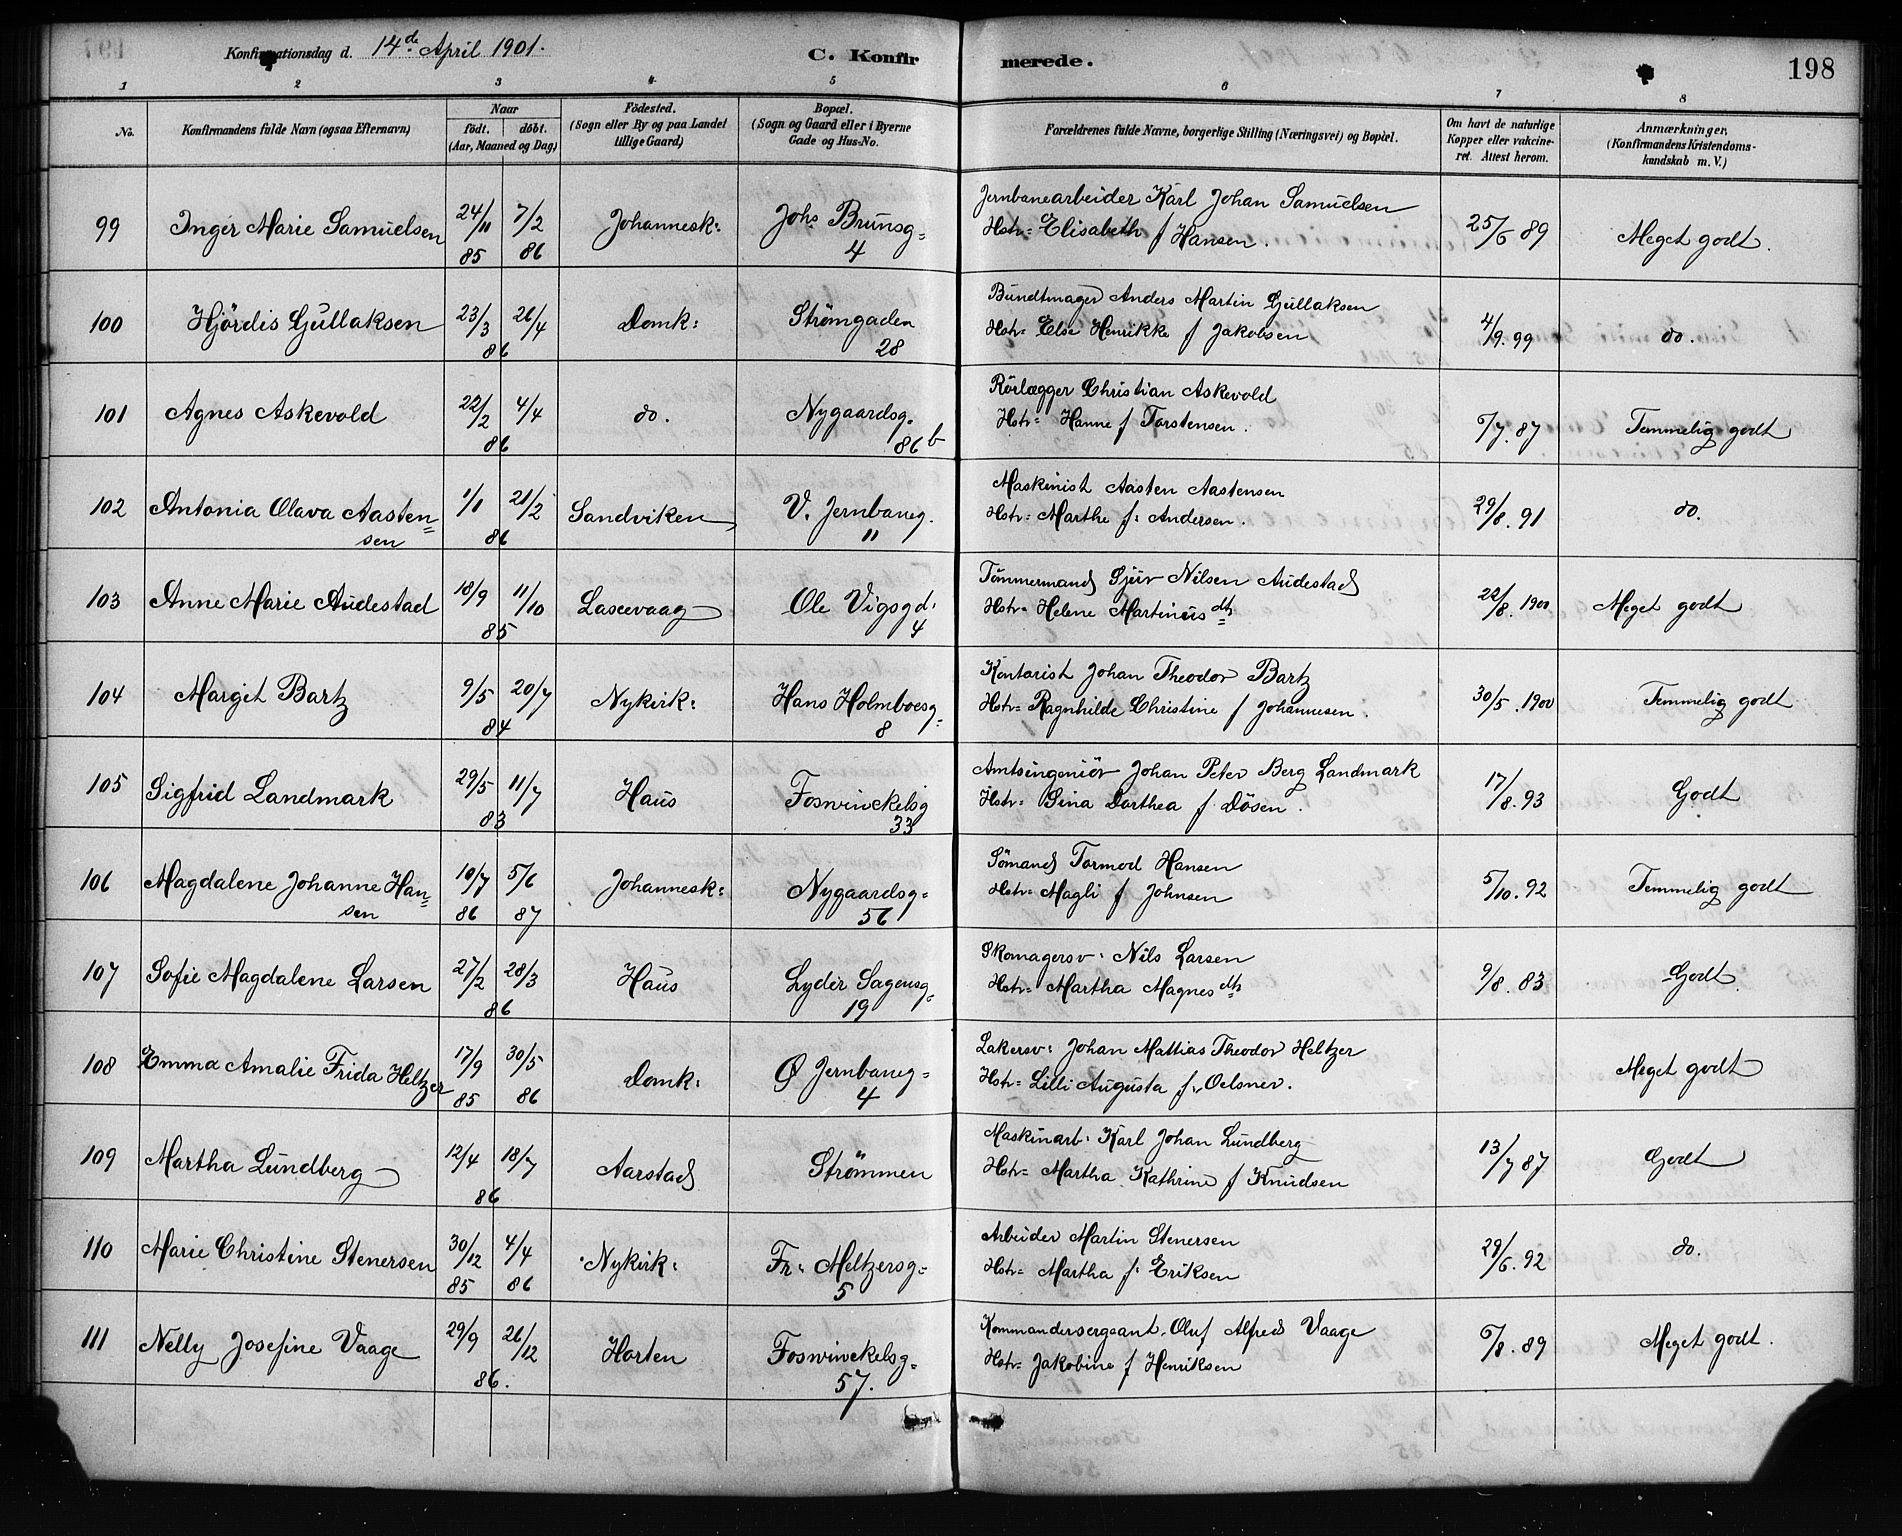 Konfirmationsdag d. 14de April 1901.
C. Konfirmerede.
198
1 2 3 4 5 6 7 8
No.
Konfirmandens fulde Navn (ogsaa Efternavn)
Naar
født. døbt.
(Aar, Maaned og Dag)
Fødested.
(Sogn eller By og paa Landet
tillige Gaard)
Bopæl.
(Sogn og Gaard eller i Byerne
Gade og Hus-No.
Forældrenes fulde Navne, borgerlige Stilling (Næringsvei) og Bopæl.
Om havt de naturlige
Kopper eller vakcine-
ret. Attest herom.
Anmærkninger,
(Konfirmandens Kristendoms-
kundskab m. V.)
99 Inger Marie Samuelsen 24/11 85 7/2 86 Johannesk: Johs Brunsg= 4
Jernbanearbeider Karl Johan Samuelsen
Hstr= Elisabeth f Hansen. 25/6 89 Meget godt.
100 Hjördis Gullaksen 23/3 26/4 86 Domk: Strömgaden 28
Bundtmager Anders Martin Gullaksen
Hstr= Else Henrikke f Jakobsen 4/9. 99 do.
101 Agnes Askevold 22/2 4/4 86 do. Nygaardsg. 86 b
Rörlægger Christian Askevold
Hstr= Hanne f Torstensen. 6/7. 87 Temmelig godt
102 Antonia Olava Aasten=
sen 1/1 21/2 86 Sandviken V. Jernbaneg. 11
Maskinist Aasten Aastensen
Hstr= Marthe f: Andersen. 29/8. 91 do.
103 Anne Marie Audestad 18/9 11/10 85 Laxevaag Ole Vigsgd: 4
Tömmermand Sjur Nilsen Audestad
Hstr= Helene Martinusdtr 22/8. 1900 Meget godt
104 Margit Bartz 9/5 20/7 84 Nykirk: Hans Holmboesg= 8
Kontorist Johan Theodor Bartz
Hstr= Ragnhilde Christine f Johannesen. 30/5. 1900 Temmelig godt
105 Sigfrid Landmark 29/5 11/7 83 Haus Foswinckelsg 33
Amtsingeniör Johan Peter Berg Landmark
Hstr= Gina Dorthea f. Dösen. 17/8. 93 Godt
106 Magdalene Johanne Han=
sen 10/7 86 5/6 87 Johannesk: Nygaardsg= 56
Sömand Tormod Hansen
Hstr= Magli f Johnsen 5/10. 92 Temmelig godt
107 Sofie Magdalene Larsen 27/2 28/3 86 Haus Lyder Sagensg= 19
Skomagersv: Nils Larsen
Hstr= Martha Magnesdtr 9/8. 83 Godt
108 Emma Amalie Frida Heltzer 17/9 85 30/5 86 Domk: Ø Jernbaneg= 4
Lakersv: Johan Mattias Theodor Heltzer
Hstr= Lilli Augusta f. Oelsner. Meget godt
109 Martha Lundberg 12/4 18/7 86 Aarstad Strømmen
Maskinarb: Karl Johan Lundberg
Hstr= Martha Kathrine f Knudsen 13/7 87 Godt
110 Marie Christine Stenersen 30/12 85 4/4 86 Nykirk: Fr: Meltzersg= 5
Arbeider Martin Stenersen
Hstr= Martha f: Eriksen 29/6. 92 do.
111 Nelly Josefine Vaage 29/9 26/12 86. Horten Foswinckelsg= 57.
Kommandersergeant. Oluf Alfred Vaage
Hstr= Jakobine f Henriksen 6/8. 89 Meget godt.